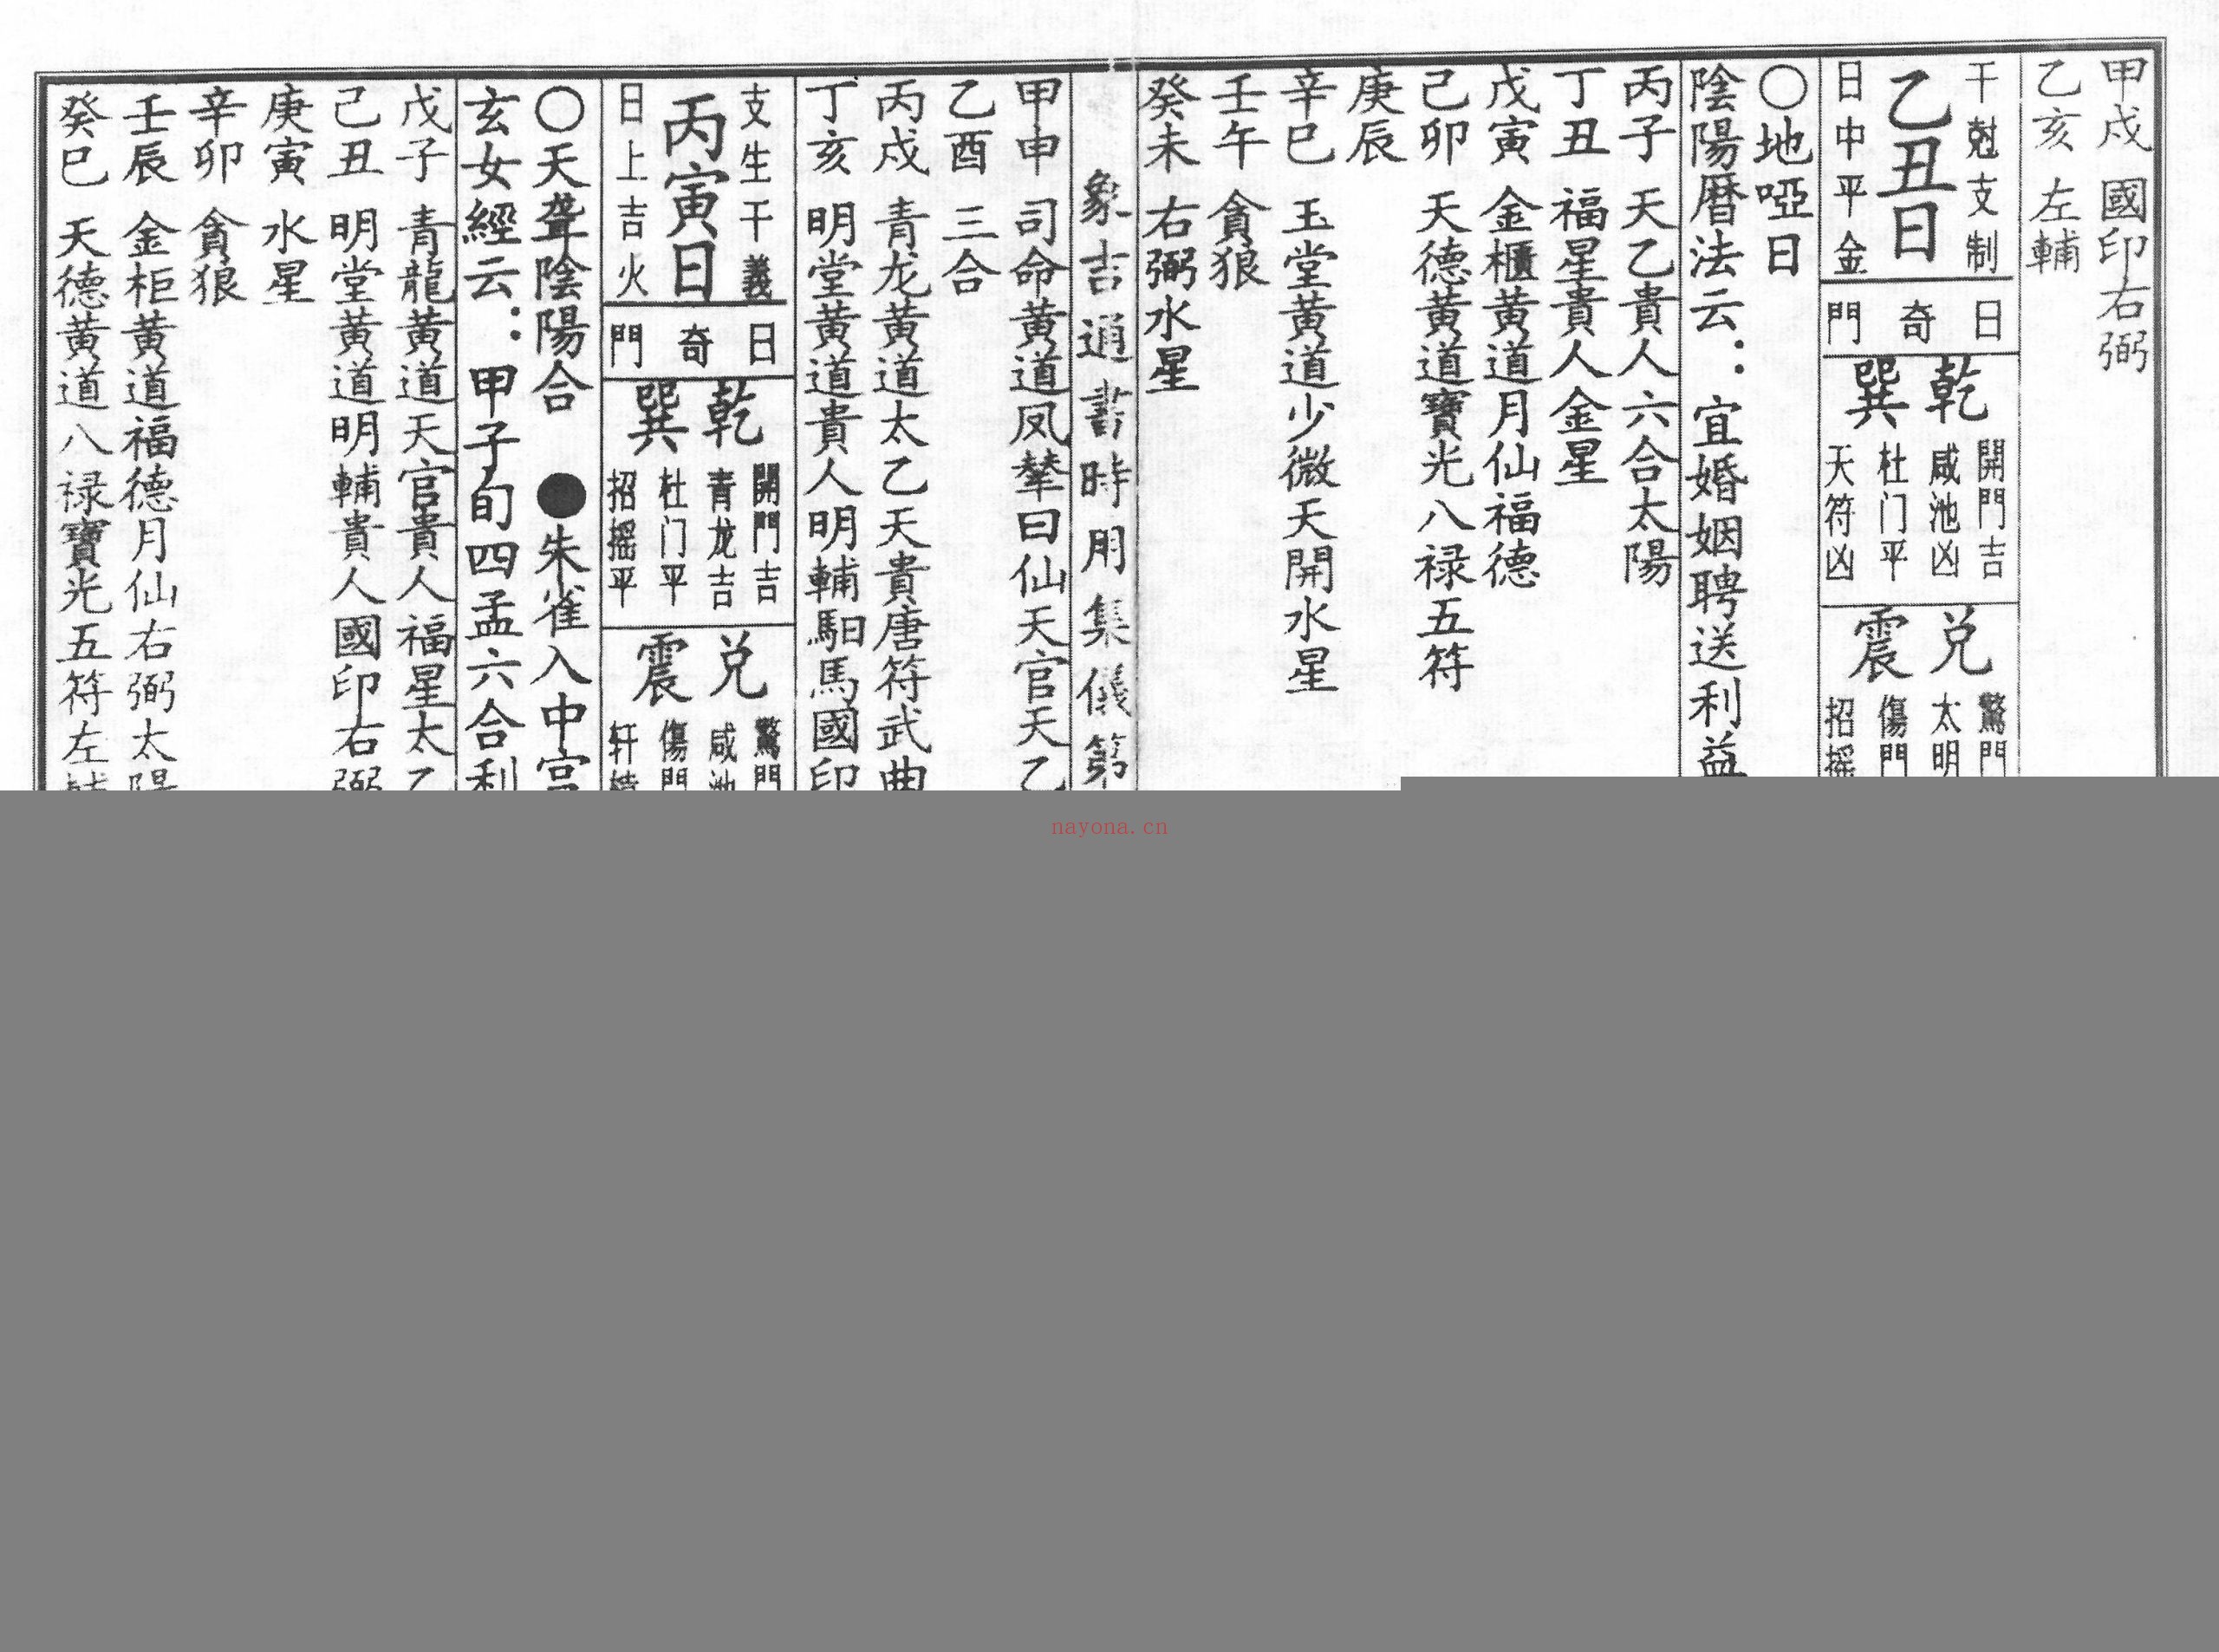 甲戌 國印右弼
乙亥 左輔
干尅支制
乙丑日
日中平金
日奇門
乾
開門吉
咸池凶
巽
杜门平
天符凶
兑
驚門
太明
震
傷門
招摇
〇地啞日
陰陽曆法云：宜婚姻聘送利益
丙子 天乙貴人六合太陽
丁丑 福星貴人金星
戊寅 金櫃黄道月仙福德
己卯 天德黄道寶光八禄五符
庚辰
辛巳 玉堂黄道少微天開水星
壬午 貪狼
癸未 右弼水星
象吉通書時用集儀第
甲申 司命黄道凤輦曰仙天官天乙
乙酉 三合
丙戌 青龙黄道太乙天貴唐符武曲
丁亥 明堂黄道貴人明輔馹馬國印
支生干義
丙寅日
日上吉火
日奇門
乾
開門吉
青龙吉
巽
杜门平
招摇平
兑
驚門
咸池
震
傷門
轩
〇天聋陰陽合 ●朱雀入中宫
玄女經云：甲子旬四孟六合利
戊子 青龍黄道天官貴人福星太乙
己丑 明堂黄道明輔貴人國印右弼
庚寅 水星
辛卯 貪狼
壬辰 金柜黄道福德月仙右弼太陽
癸巳 天德黄道八禄寶光五符左輔
nayona.cn